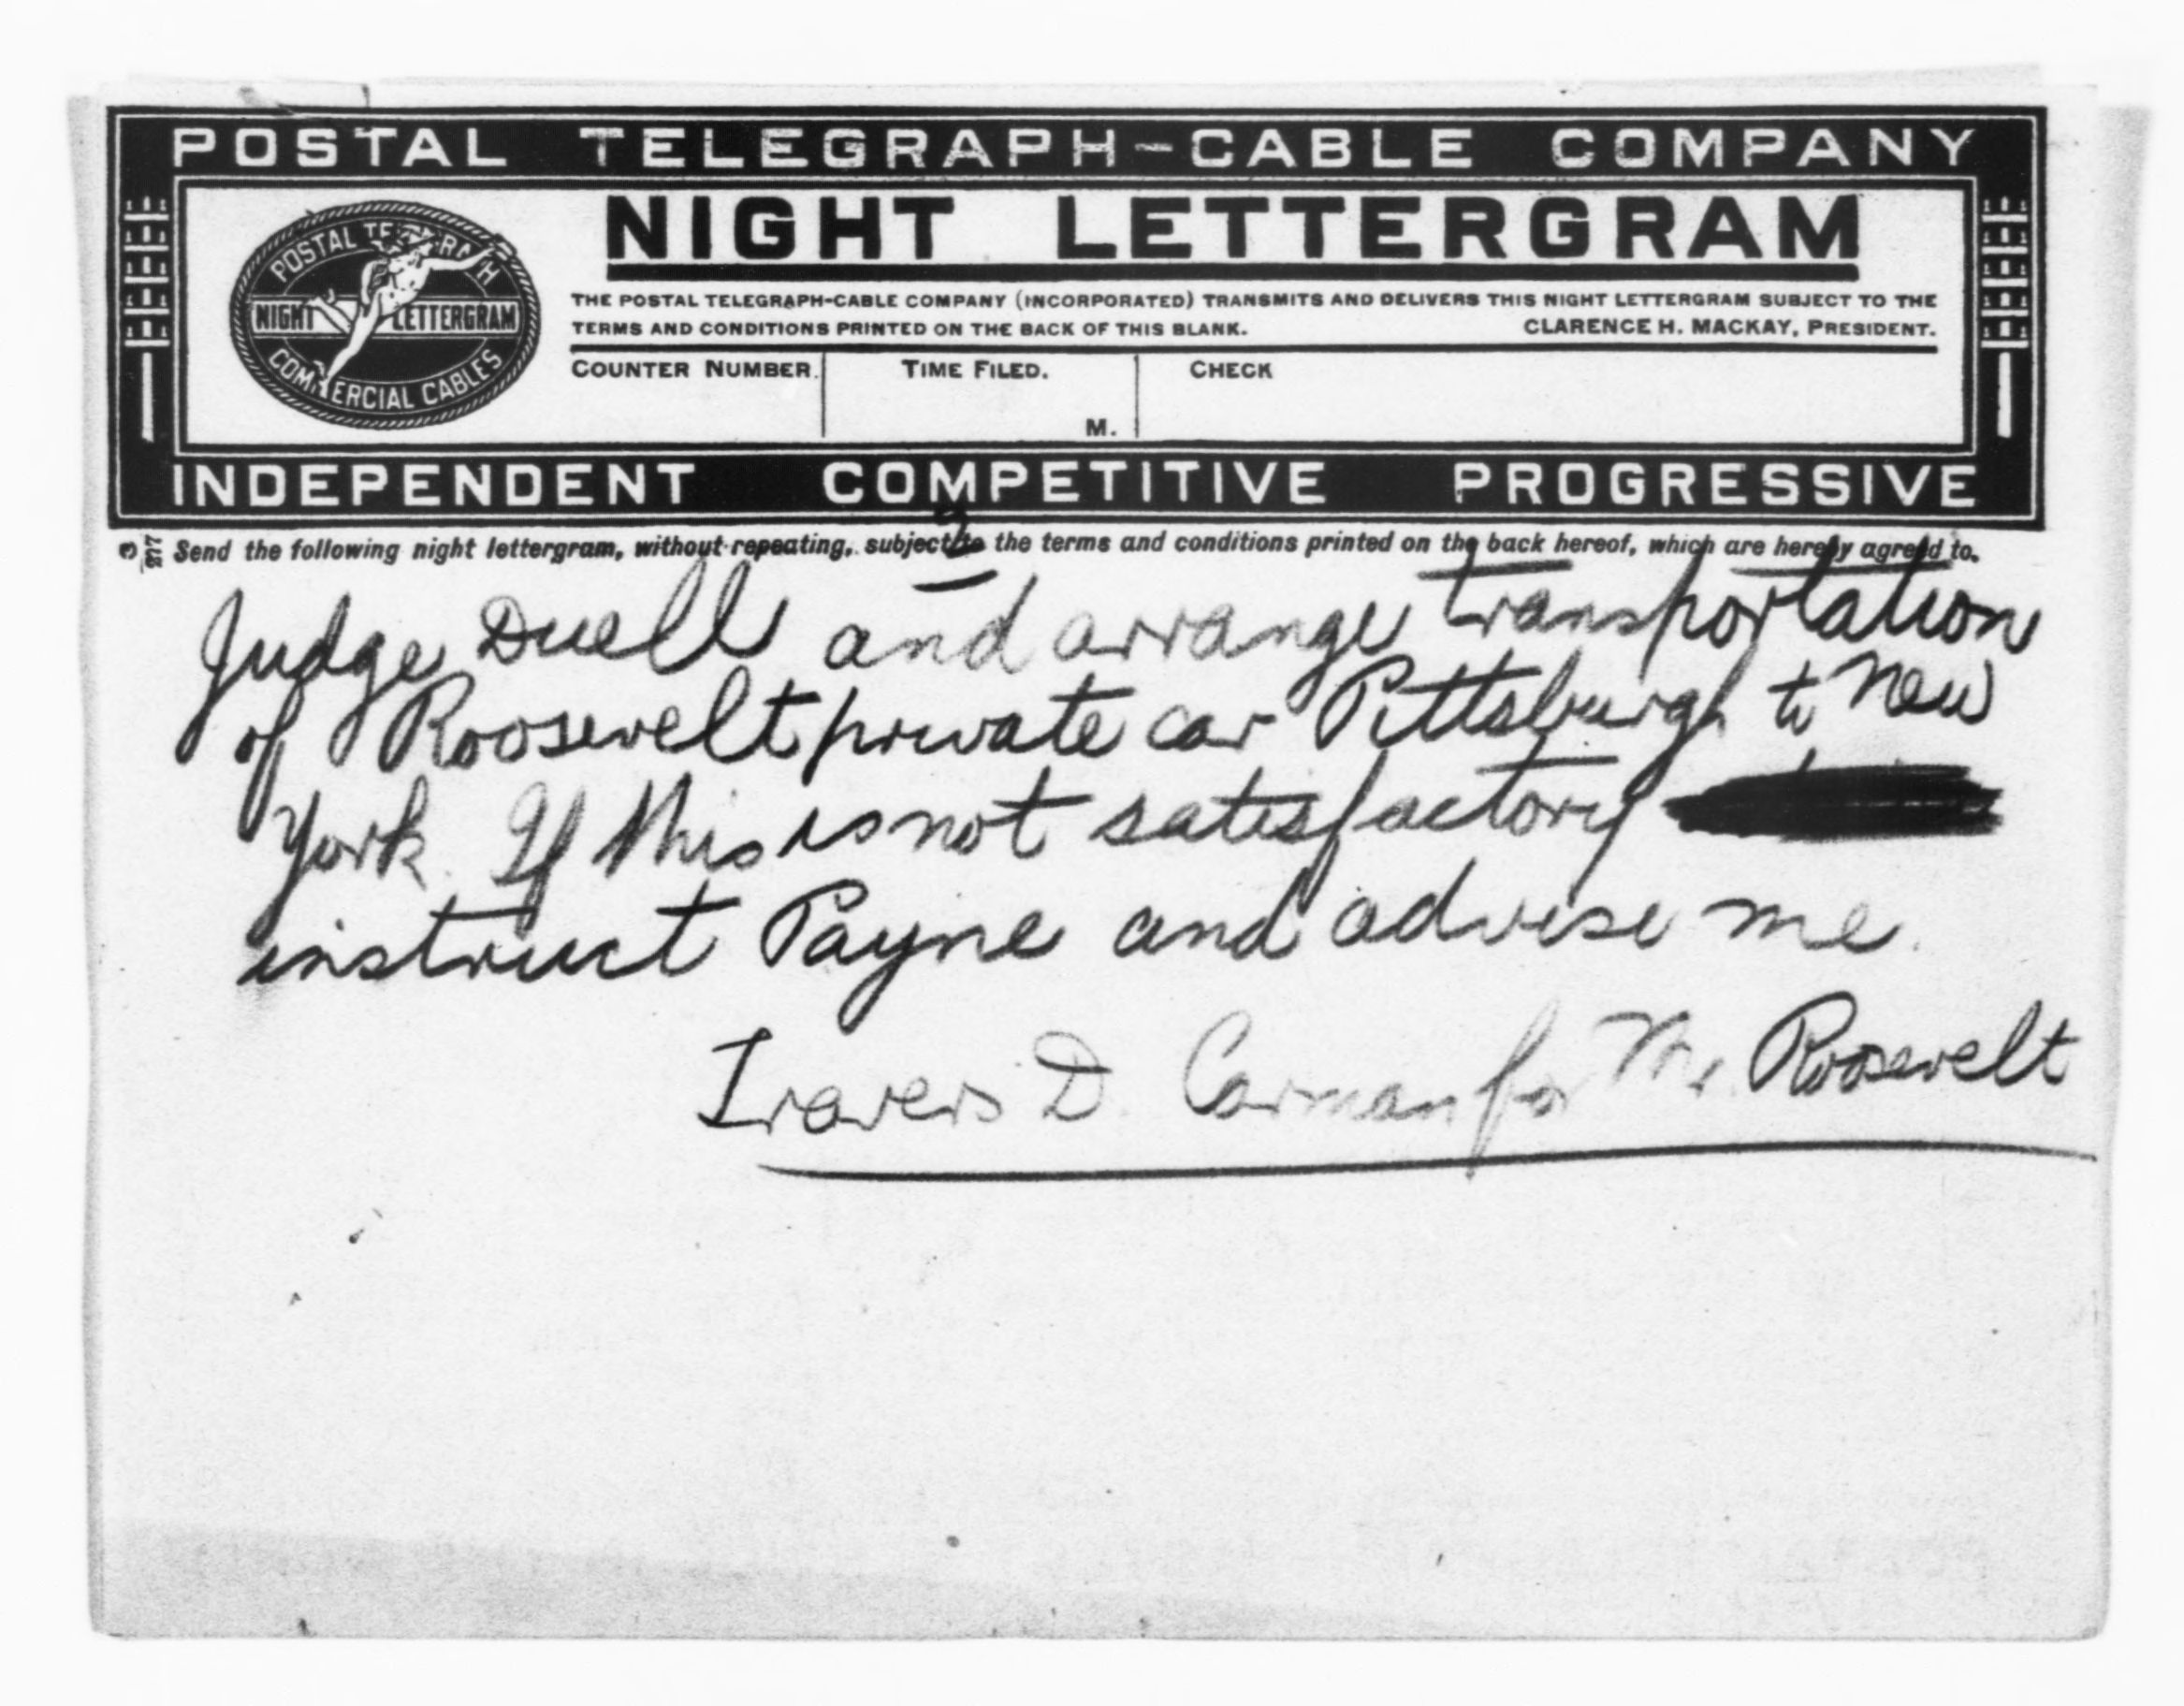 POSTAL TELEGRAPH-CABLE COMPANY
NIGHT LETTERGRAM
POSTAL TELEGRAPH
NIGHT LETTERGRAM
COMMERCIAL CABLES
THE POSTAL TELEGRAPH-CABLE COMPANY (INCORPORATED) TRANSMITS AND DELIVERS THIS NIGHT LETTERGRAM SUBJECT TO THE
TERMS AND CONDITIONS PRINTED ON THE BACK OF THIS BLANK. CLARENCE H. MACKAY, PRESIDENT.
COUNTER NUMBER. TIME FILED. CHECK
M.
INDEPENDENT COMPETITIVE PROGRESSIVE
2
3 277 Send the following night lettergram, without repeating, subject to the terms and conditions printed on the back hereof, which are hereby agreed to.
Judge Duell and arrange transportation
of Roosevelt private car Pittsburgh to New
York. If this is not satisfactory
instruct Payne and advise me.
Travers D. Carman for Mr Roosevelt